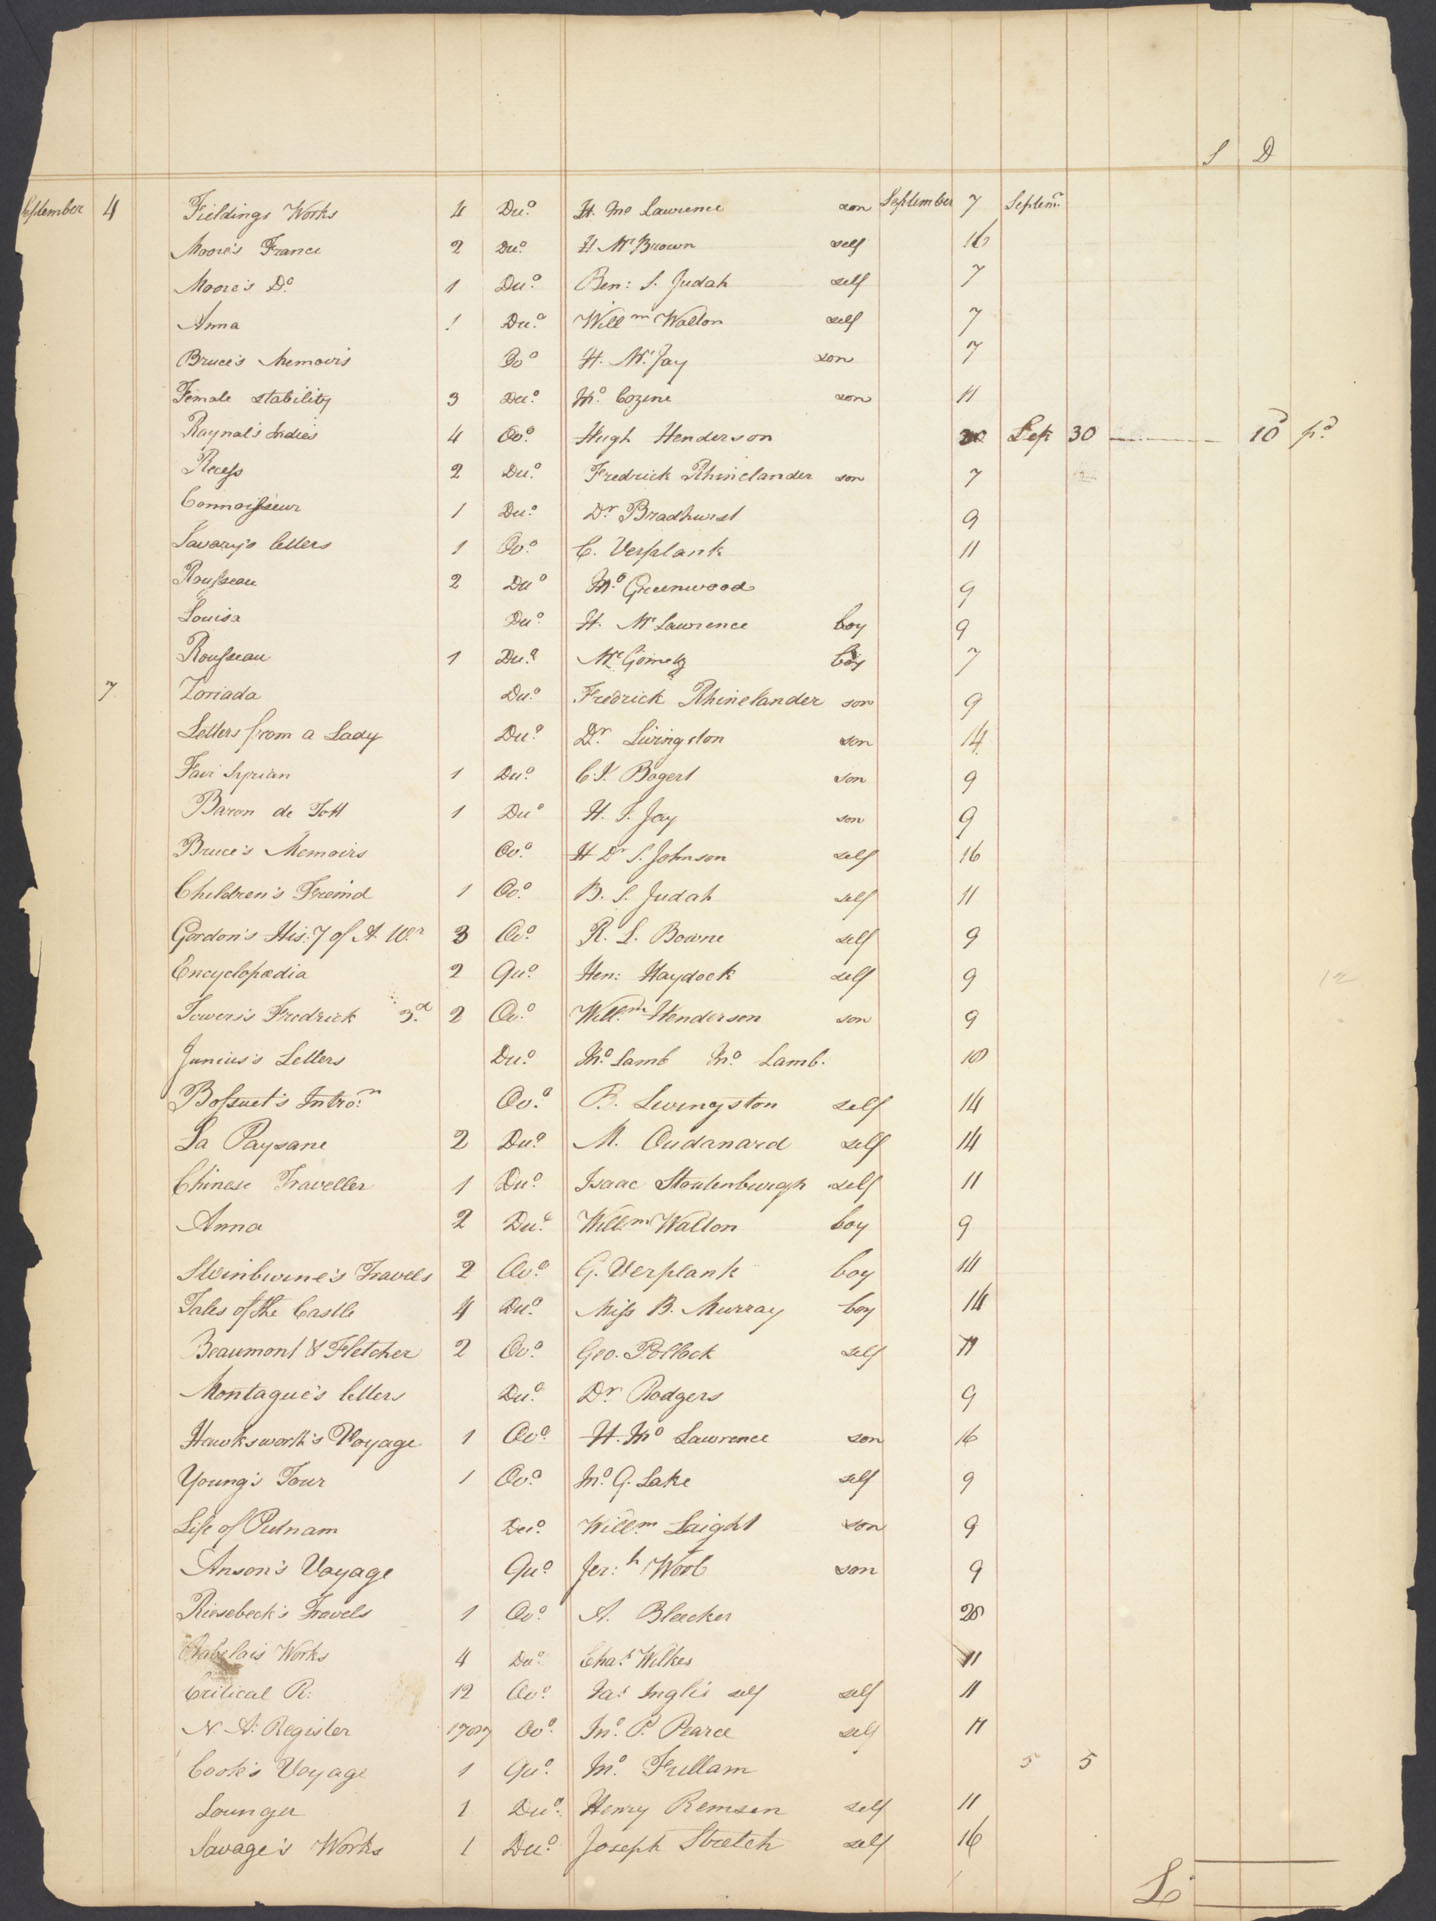 S D
September 4 Fieldings Works 4 Duo. H. Jno Lawrence son September 7 Septemr.
Moore's France 2 Duo. H Mr Brown self 16
Moore's Do. 1 Duo. Ben: S. Judah self 7
Anna 1 Duo. Willm Walton self 7
Bruce's Memoirs Oo H. Mr Jay son 7
Female stability 3 Duo. Jno. Cozine son 11
Raynal's Indies 4 Ovo. Hugh Henderson Sep 30 10 pd.
Recess 2 Duo. Fredrick Rhinelander son 7
Connoisseur 1 Duo. Dr Bradhurst 9
Savary's letters 1 Ovo. C. Verplank 11
Rousseau 2 Duo Jno. Greenwood 9
Louisa Duo. H. Mr Lawrence boy 9
Rousseau 1 Duo. Mr Gometz boy 7
7 Zoriada Duo. Fredrick Rhinelander son 9
Letters from a Lady Duo. Dr. Livingston son 14
Fair Syrian 1 Duo. C. J. Bogert son 9
Baron de Tott 1 Duo H. S. Jay son 9
Bruce's Memoirs Ovo. H Dr S. Johnson self 16
Children's Freind 1 Ovo. B. S. Judah self 11
Gordon's His:y of A. Wr 3 Ovo. R. L. Bowne self 9
Encyclopædia 2 Quo. Hen: Haydock self 9 12
Towers's Fredrick 3d. 2 Ovo. Willm. Henderson son 9
Junius's Letters Duo. Jno. Lamb Jno. Lamb. 10
Bossuet's Intro:n Ovo. B. Livingston self 14
La Paysane 2 Duo. M. Oudanard self 14
Chinese Traveller 1 Duo. Isaac Stoutenburgh self 11
Anna 2 Duo. Willm. Walton boy 9
Swinburne's Travels 2 Ovo. G. Verplank boy 14
Tales of the Castle 4 Duo. Miss B. Murray boy 14
Beaumont & Fletcher 2 Ovo. Geo. Pollock self 11
Montague's letters Duo. Dr Rodgers 9
Hawksworth's Voyage 1 Ovo. H. Jno Lawrence son 16
Young's Tour 1 Ovo. Jno. G. Lake self 9
Life of Putnam Duo. Willm. Laight son 9
Anson's Voyage Quo. Jer:h Wool son 9
Riesebeck's Travels 1 Ovo. A. Bleecker 28
Rabelais Works 4 Duo. Chas Wilkes 11
Critical R: 12 Ovo. Jas Inglis self self 11
N. A: Register 1787 Ovo. Jno. P. Pearce self 11
Cook's Voyage 1 Quo. Jno. Fullam 5 5
Lounger 1 Duo. Henry Remsen self 11
Savage's Works 1 Duo. Joseph Stretch self 16
L